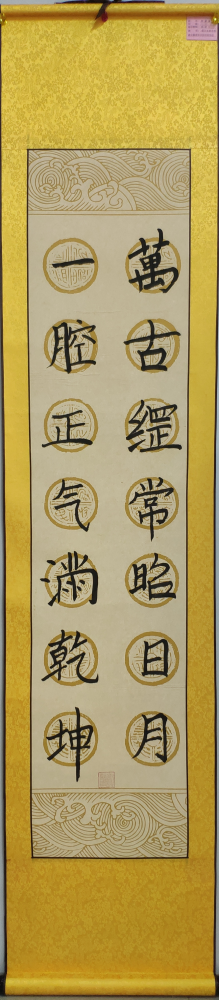 萬古綱常昭日月
一腔正气滿乾坤